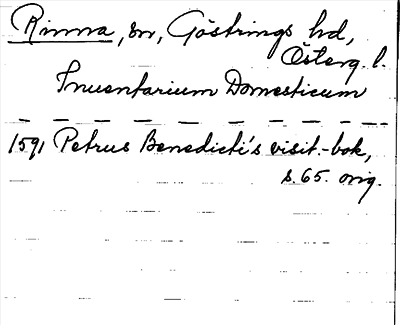 Rinna, sn, Göstrings hd,
Österg. l.
Inuentarium Domesticum
1591 Petrus Benedicti's visit.-bok,
s. 65. orig.